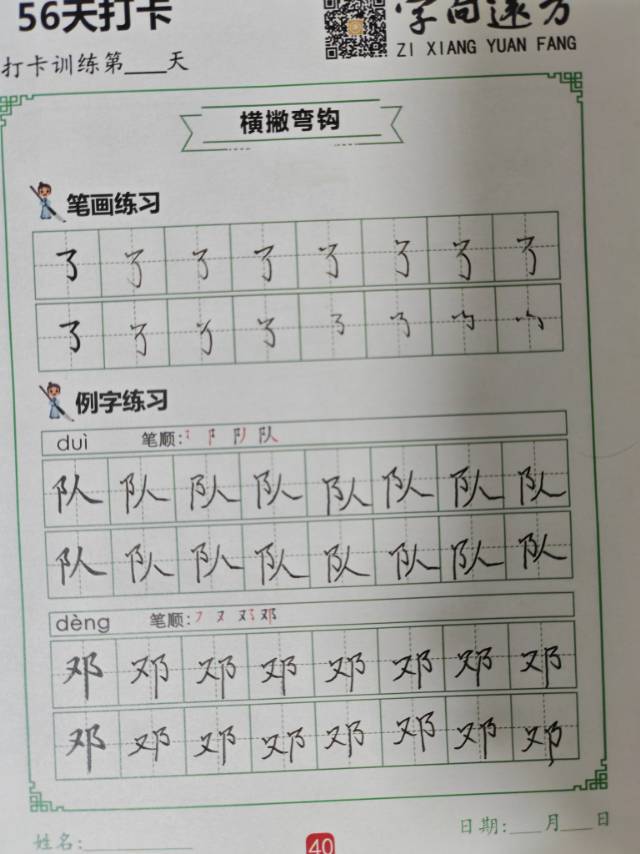 56天打卡
字向遠方
ZI XIANG YUAN FANG
打卡训练第____天
横撇弯钩
笔画练习
例字练习
duì 笔顺:
队 队 队 队 队 队 队 队
队 队 队 队 队 队 队 队
dèng 笔顺:
邓 邓 邓 邓 邓 邓 邓 邓
邓 邓 邓 邓 邓 邓 邓 邓
姓名:__________ 40 日期:___月___日